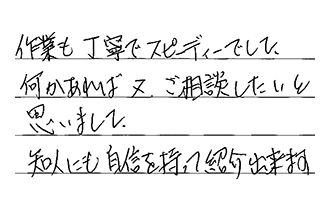 作業も丁寧でスピーディーでした。
何かあれば又、ご相談したいと
思いました。
知人にも自信を持って紹介出来ます。